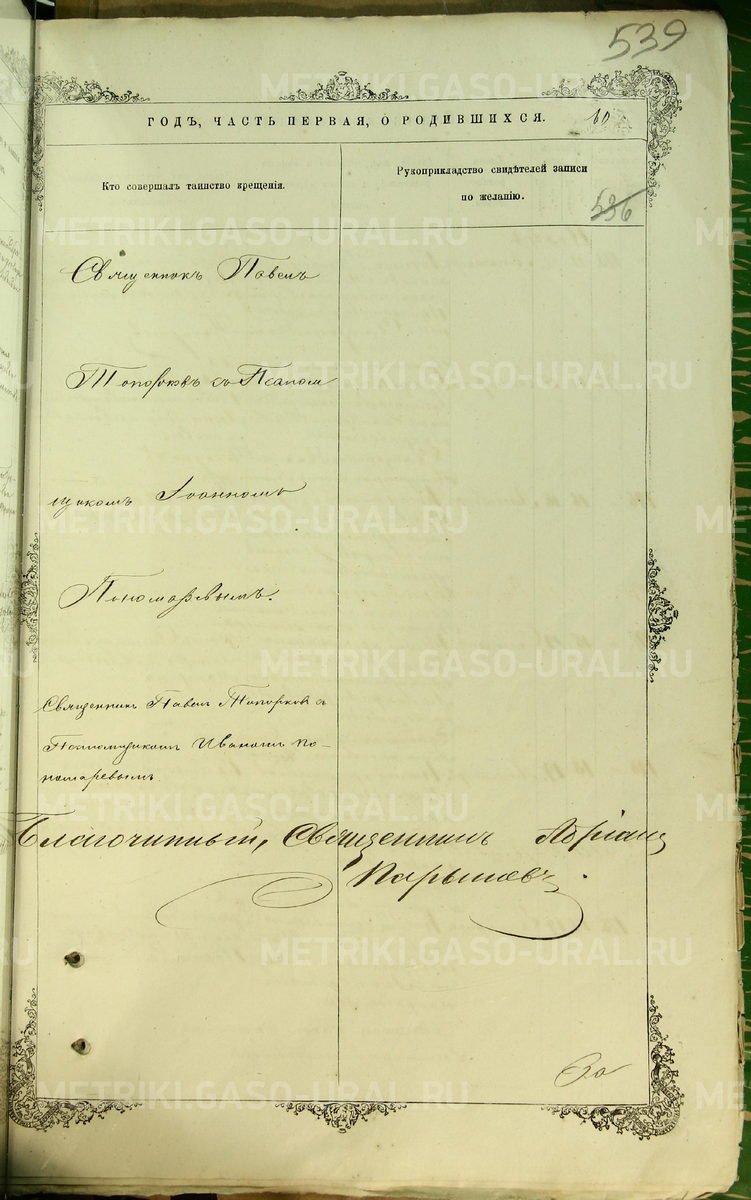 539
ГОДЪ, ЧАСТЬ ПЕРВАЯ, О РОДИВШИХСЯ.
60
Кто совершалъ таинство крещенія.
Рукоприкладство свидѣтелей записи
по желанію.
536
Священникъ Павелъ
Топорковъ съ Псалом
щикомъ Іоанномъ
Пономаревымъ.
Священник Павел Топорков с
Псаломщиком Иваном По-
номаревым.
Благочинный, Священникъ Адріанъ
METRIKI.GASO-URAL.RU